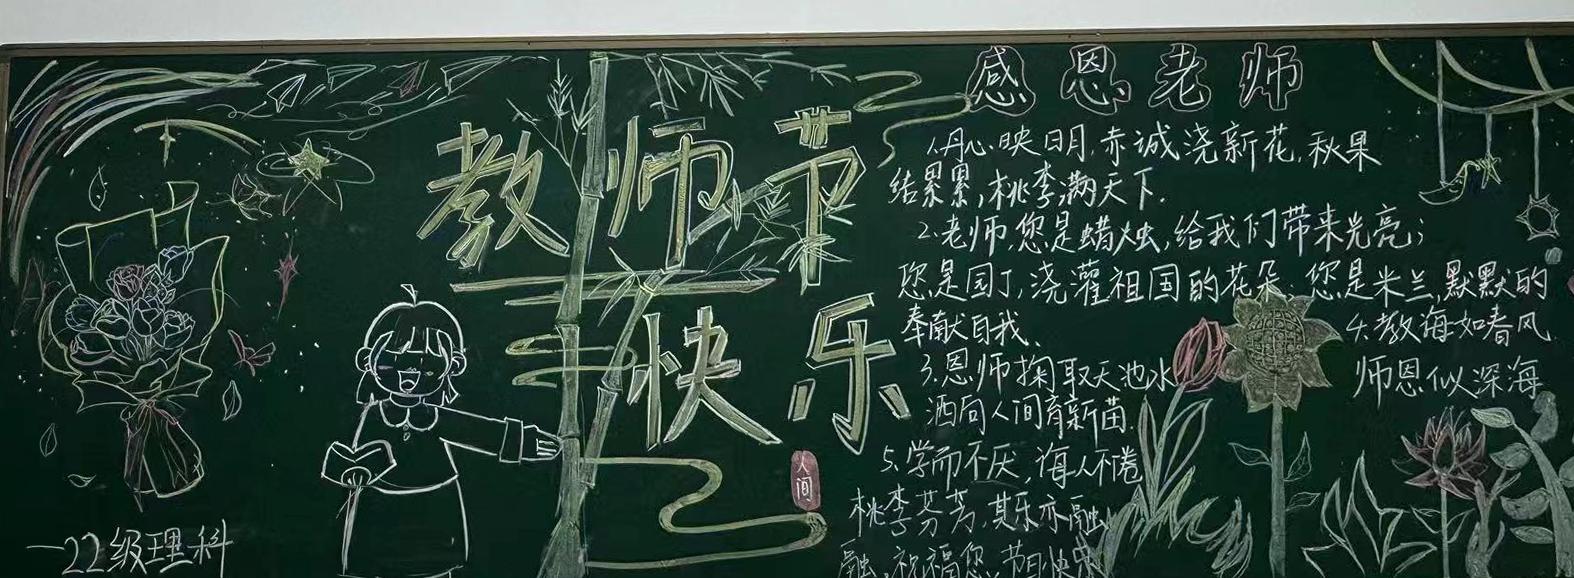 教师节
快乐
人间
一22级理科
感恩老师
1.丹心映日月,赤诚浇新花,秋果
结累累,桃李满天下.
2.老师,您是蜡烛,给我们带来光亮;
您是园丁,浇灌祖国的花朵;您是米兰,默默的
奉献自我、
3.恩师掬取天池水
洒向人间育新苗.
4.教海如春风
师恩似深海
5.学而不厌,诲人不倦
桃李芬芳,其乐亦融
融,祝福您、节日快乐